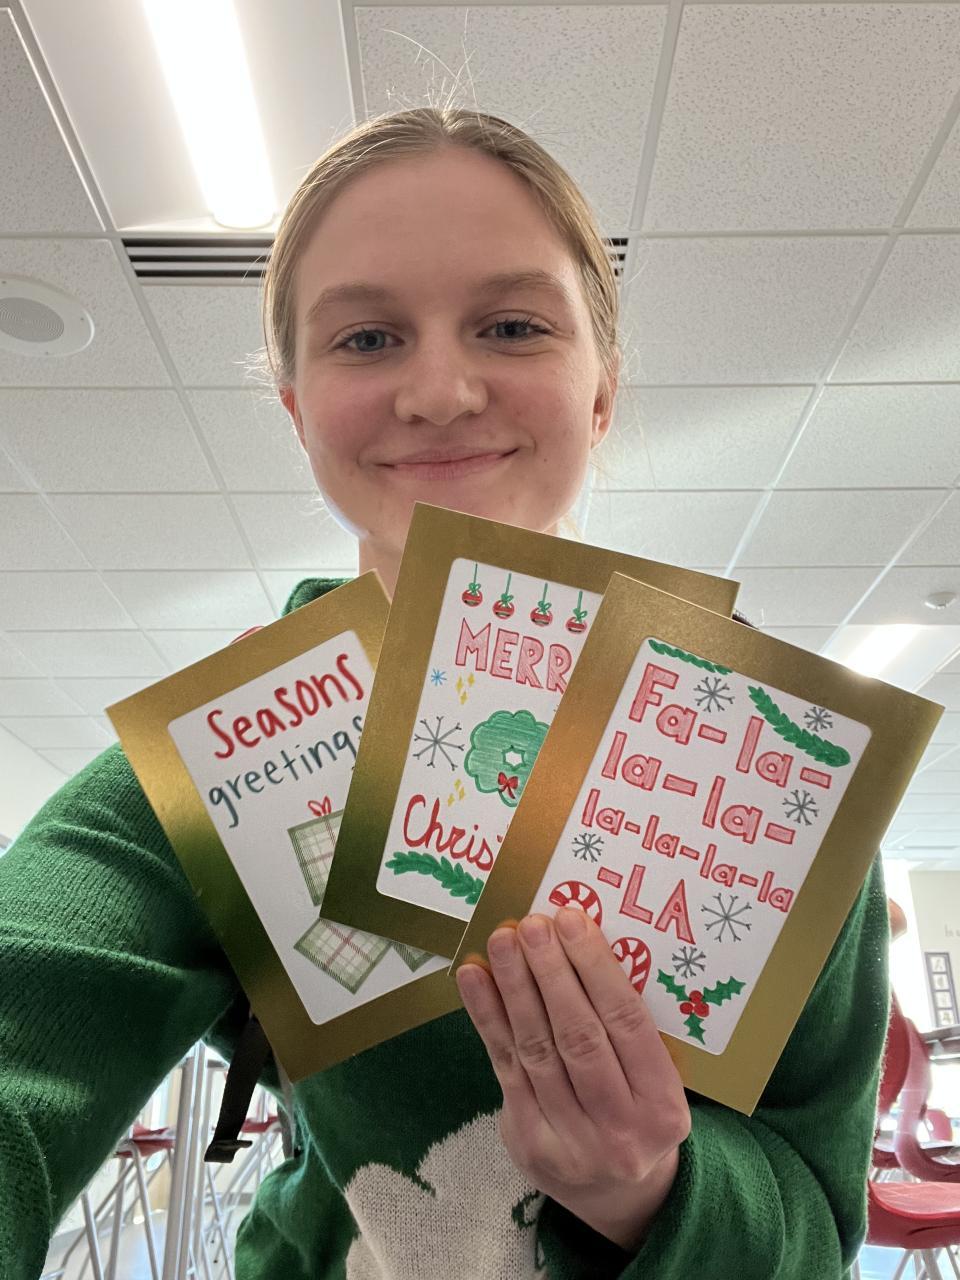 Seasons
greetings
MERR
Chris
Fa-la-
la-la-
la-la-la-la
-LA